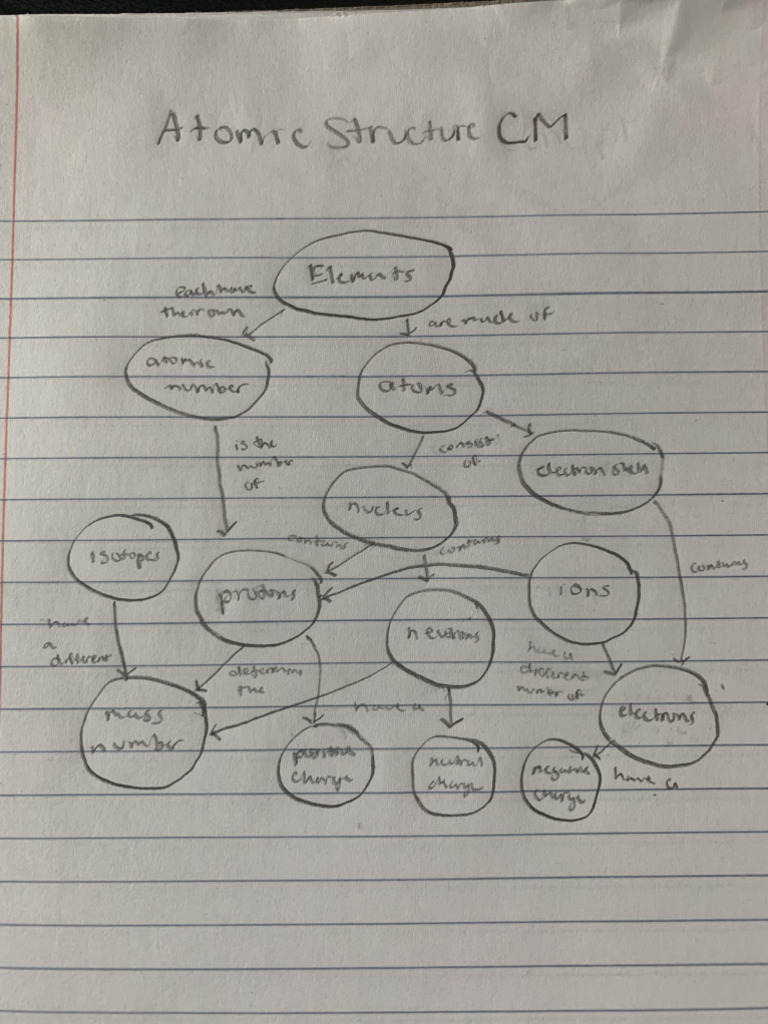 Atomic Structure CM
Elements
each have
their own
are made of
atomic
number
atoms
is the
number
of
consist
of
electron shells
nucleus
contains
contains
isotopes
protons
ions
contains
neutrons
have
a
different
determine
the
have a
different
number of
mass
number
have a
electrons
positive
charge
neutral
charge
negative
charge
have a